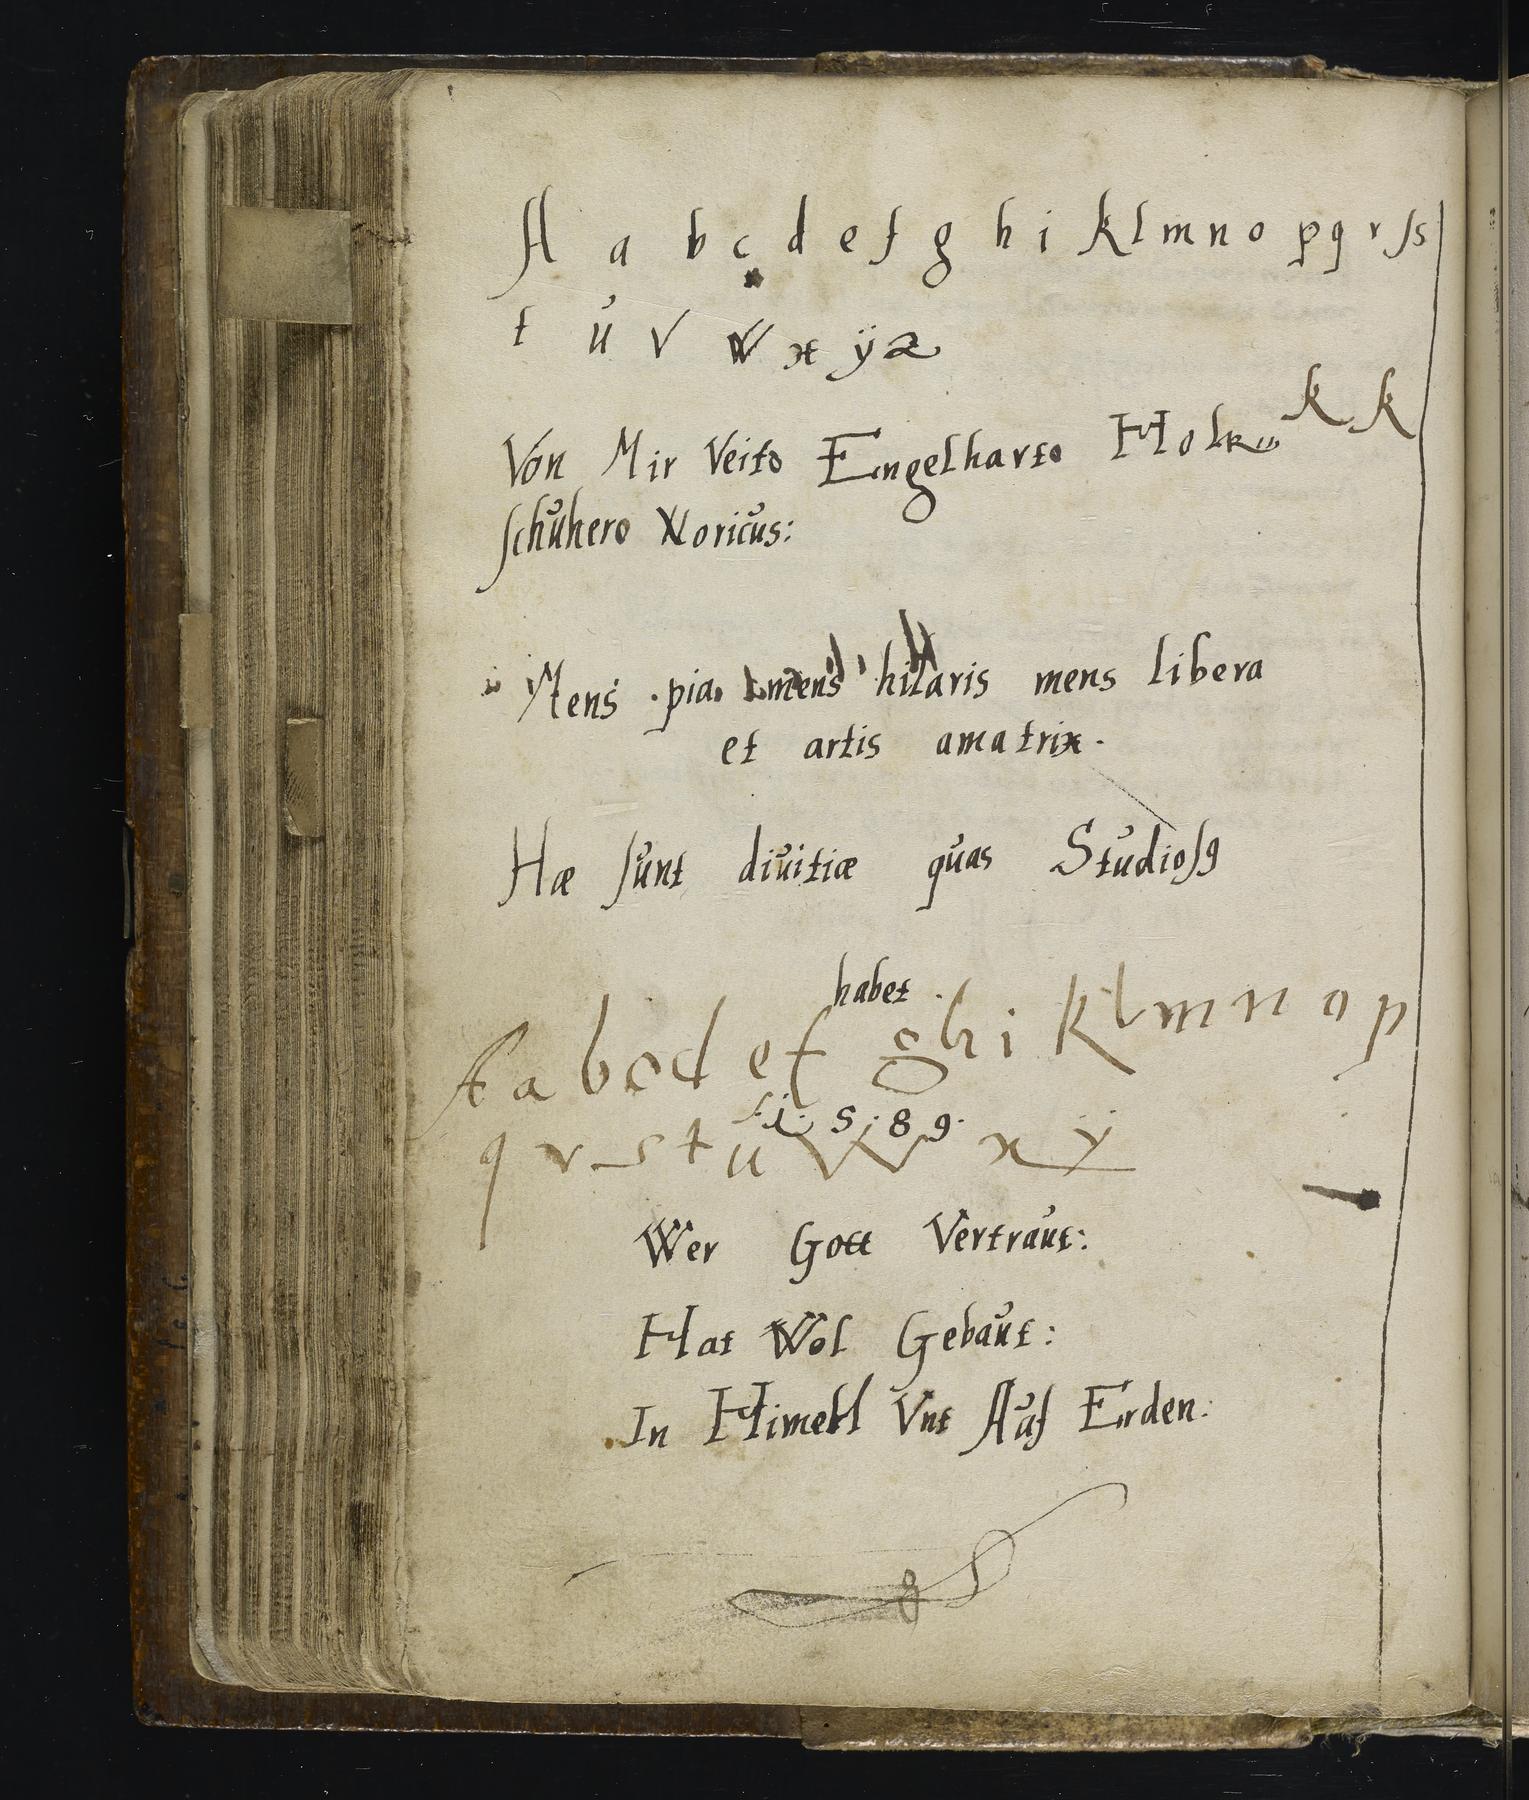 A a b c d e f g h i k l m n o p q r ſ s
t ů v w x ÿ z
k k
Von Mir Veito Engelharto Holk
ſchůhero Noricůs:
Mens pia mens hilaris mens libera
et artis amatrix.
Hæ ſůnt diůitiæ qůas Stůdioſꝯ
habet.
A a b c d e f g h i k l m n o p
1. 5. 8 9.
q r s t u w x ÿ
Wer Gott Vertraůt:
Hat Wol Gebaůt:
In Himehl Vnt Aůf Erden: